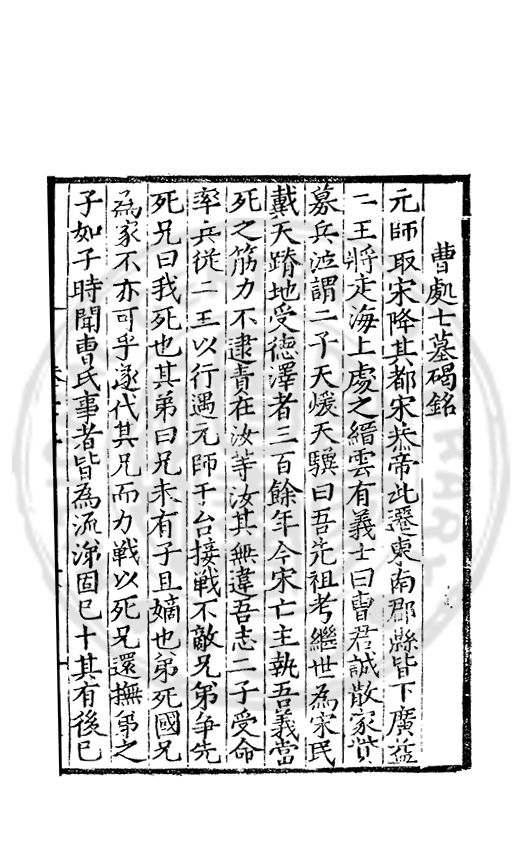 曹處士墓碣銘
元師取宋降其都宋恭帝北遷東南郡縣皆下廣益
二王將走海上處之縉雲有義士曰曹君誠散家貲
募兵泣謂二子天煖天驥曰吾先祖考繼世為宋民
戴天蹐地受德澤者三百餘年今宋亡主執吾義當
死之筋力不逮責在汝等汝其無違吾志二子受命
率兵從二王以行遇元師于台接戰不敵兄弟爭先
死兄曰我死也其弟曰兄未有子且嫡也弟死國兄
為家不亦可乎遂代其兄而力戰以死兄還撫弟之
子如子時聞曹氏事者皆為流涕固已卜其有後已